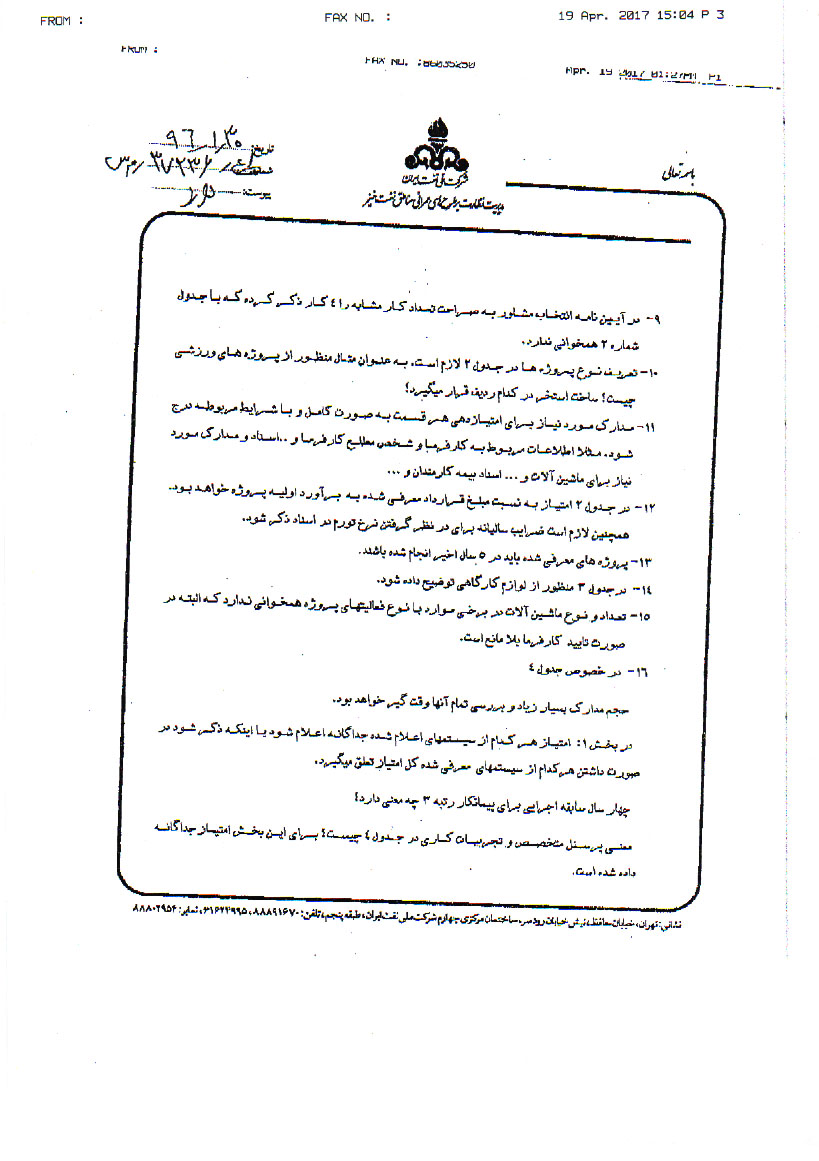 FROM : FAX NO. : 19 Apr. 2017 15:04 P 3
FROM : FAX NO. :86035250 Apr. 19 2017 01:27PM P1
باسمه تعالی
شرکت ملی نفت ایران
مدیریت نظارت بر طرح های عمرانی مناطق نفت خیز
تاریخ: ۹۶/۱/۳۰
شماره:
پیوست:
۹- در آیین نامه انتخاب مشاور به صراحت تعداد کار مشابه را ۴ کار ذکر کرده که با جدول
شماره ۲ همخوانی ندارد.
۱۰- تعریف نوع پروژه ها در جدول ۲ لازم است. به عنوان مثال منظور از پروژه های ورزشی
چیست؟ ساخت استخر در کدام ردیف قرار میگیرد؟
۱۱- مدارک مورد نیاز برای امتیازدهی هر قسمت به صورت کامل و با شرایط مربوطه درج
شود. مثلا اطلاعات مربوط به کارفرما و شخص مطلع کارفرما و ..اسناد و مدارک مورد
نیاز برای ماشین آلات و ... اسناد بیمه کارمندان و ...
۱۲- در جدول ۲ امتیاز به نسبت مبلغ قرارداد معرفی شده به برآورد اولیه پروژه خواهد بود.
همچنین لازم است ضرایب سالیانه برای در نظر گرفتن نرخ تورم در اسناد ذکر شود.
۱۳- پروژه های معرفی شده باید در ۵ سال اخیر انجام شده باشند.
۱۴- در جدول ۳ منظور از لوازم کارگاهی توضیح داده شود.
۱۵- تعداد و نوع ماشین آلات در برخی موارد با نوع فعالیتهای پروژه همخوانی ندارد که البته در
صورت تایید کارفرما بلامانع است.
۱۶- در خصوص جدول ۴
حجم مدارک بسیار زیاد و بررسی تمام آنها وقت گیر خواهد بود.
در بخش ۱: امتیاز هر کدام از سیستمهای اعلام شده جداگانه اعلام شود یا اینکه ذکر شود در
صورت داشتن هر کدام از سیستمهای معرفی شده کل امتیاز تعلق میگیرد.
چهار سال سابقه اجرایی برای پیمانکار رتبه ۳ چه معنی دارد؟
معنی پرسنل متخصص و تجربیات کاری در جدول ۴ چیست؟ برای این بخش امتیاز جداگانه
داده شده است.
نشانی: تهران، خیابان حافظ، نبش خیابان رودسر، ساختمان مرکزی چهارم شرکت ملی نفت ایران، طبقه پنجم، تلفن: ۸۸۸۹۱۶۷۰، ۶۱۶۲۴۹۹۵، نمابر: ۸۸۸۰۲۹۵۴